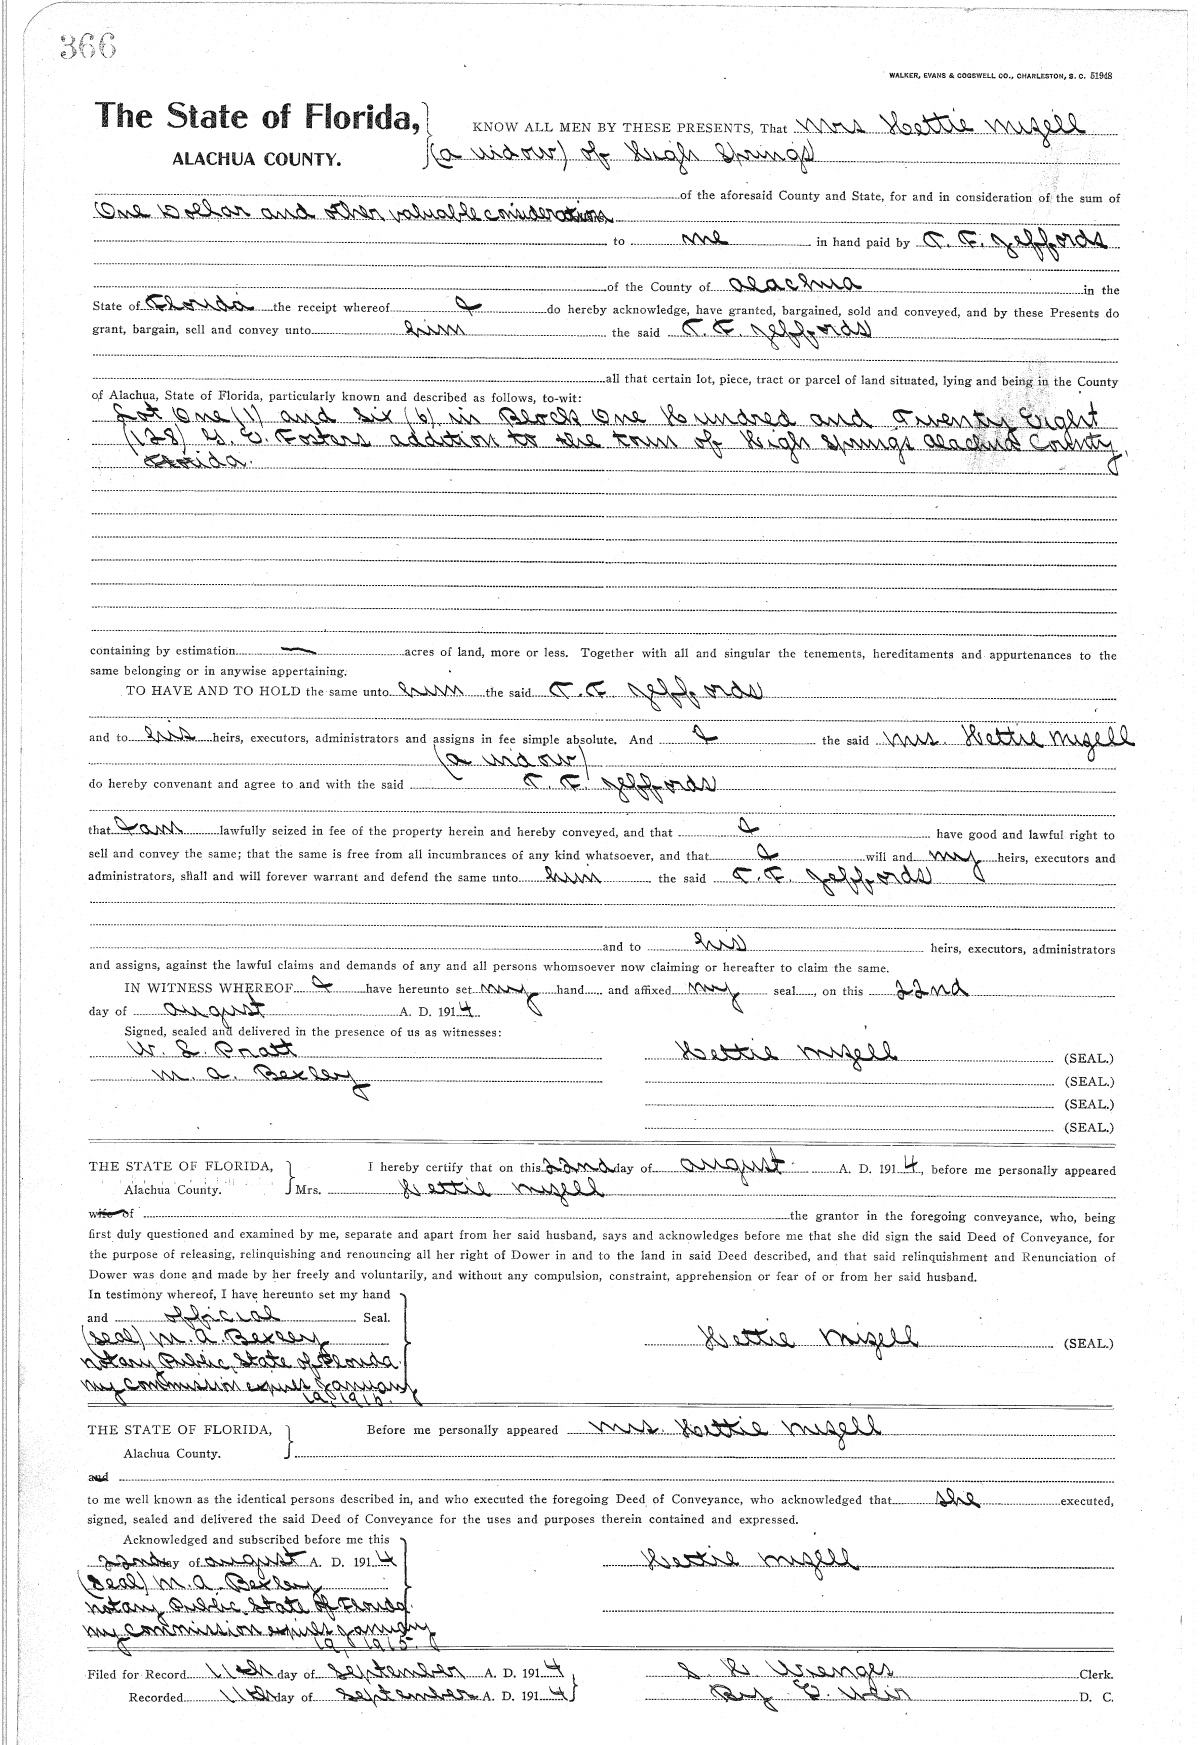 366
WALKER, EVANS & COGSWELL CO., CHARLESTON, S. C. 51948
The State of Florida,
ALACHUA COUNTY.
KNOW ALL MEN BY THESE PRESENTS, That Mrs Hettie Mizell
(a widow) of High Springs
of the aforesaid County and State, for and in consideration of the sum of
One Dollar and other valuable considerations
to me in hand paid by T. F. Jeffords
of the County of Alachua in the
State of Florida the receipt whereof I do hereby acknowledge, have granted, bargained, sold and conveyed, and by these Presents do
grant, bargain, sell and convey unto him the said T. F. Jeffords
all that certain lot, piece, tract or parcel of land situated, lying and being in the County
of Alachua, State of Florida, particularly known and described as follows, to-wit:
Lot One (1) and Six (6) in Block One Hundred and Twenty Eight
(128) G. E. Fosters addition to the town of High Springs Alachua County,
Florida.
containing by estimation — acres of land, more or less. Together with all and singular the tenements, hereditaments and appurtenances to the
same belonging or in anywise appertaining.
TO HAVE AND TO HOLD the same unto him the said T. F. Jeffords
and to his heirs, executors, administrators and assigns in fee simple absolute. And I the said Mrs. Hettie Mizell
(a widow)
do hereby convenant and agree to and with the said T. F. Jeffords
that I am lawfully seized in fee of the property herein and hereby conveyed, and that I have good and lawful right to
sell and convey the same; that the same is free from all incumbrances of any kind whatsoever, and that I will and my heirs, executors and
administrators, shall and will forever warrant and defend the same unto him the said T. F. Jeffords
and to his heirs, executors, administrators
and assigns, against the lawful claims and demands of any and all persons whomsoever now claiming or hereafter to claim the same.
IN WITNESS WHEREOF I have hereunto set my hand and affixed my seal, on this 22nd
day of August A. D. 1914
Signed, sealed and delivered in the presence of us as witnesses:
W. L. Pratt Hettie Mizell (SEAL.)
M. A. Bexley (SEAL.)
(SEAL.)
(SEAL.)
THE STATE OF FLORIDA, I hereby certify that on this 22nd day of August A. D. 1914, before me personally appeared
Alachua County. Mrs. Hettie Mizell
wife of the grantor in the foregoing conveyance, who, being
first duly questioned and examined by me, separate and apart from her said husband, says and acknowledges before me that she did sign the said Deed of Conveyance, for
the purpose of releasing, relinquishing and renouncing all her right of Dower in and to the land in said Deed described, and that said relinquishment and Renunciation of
Dower was done and made by her freely and voluntarily, and without any compulsion, constraint, apprehension or fear of or from her said husband.
In testimony whereof, I have hereunto set my hand
and official Seal.
(Seal) M. A. Bexley Hettie Mizell (SEAL.)
Notary Public, State of Florida.
My commission expires January
19, 1915.
THE STATE OF FLORIDA, Before me personally appeared Mrs. Hettie Mizell
Alachua County.
and
to me well known as the identical persons described in, and who executed the foregoing Deed of Conveyance, who acknowledged that she executed,
signed, sealed and delivered the said Deed of Conveyance for the uses and purposes therein contained and expressed.
Acknowledged and subscribed before me this
22nd day of August A. D. 1914 Hettie Mizell
(Seal) M. A. Bexley
Notary Public, State of Florida.
My commission expires January
19, 1915.
Filed for Record 11th day of September A. D. 1914 Clerk.
Recorded 11th day of September A. D. 1914 By E. Weir D. C.